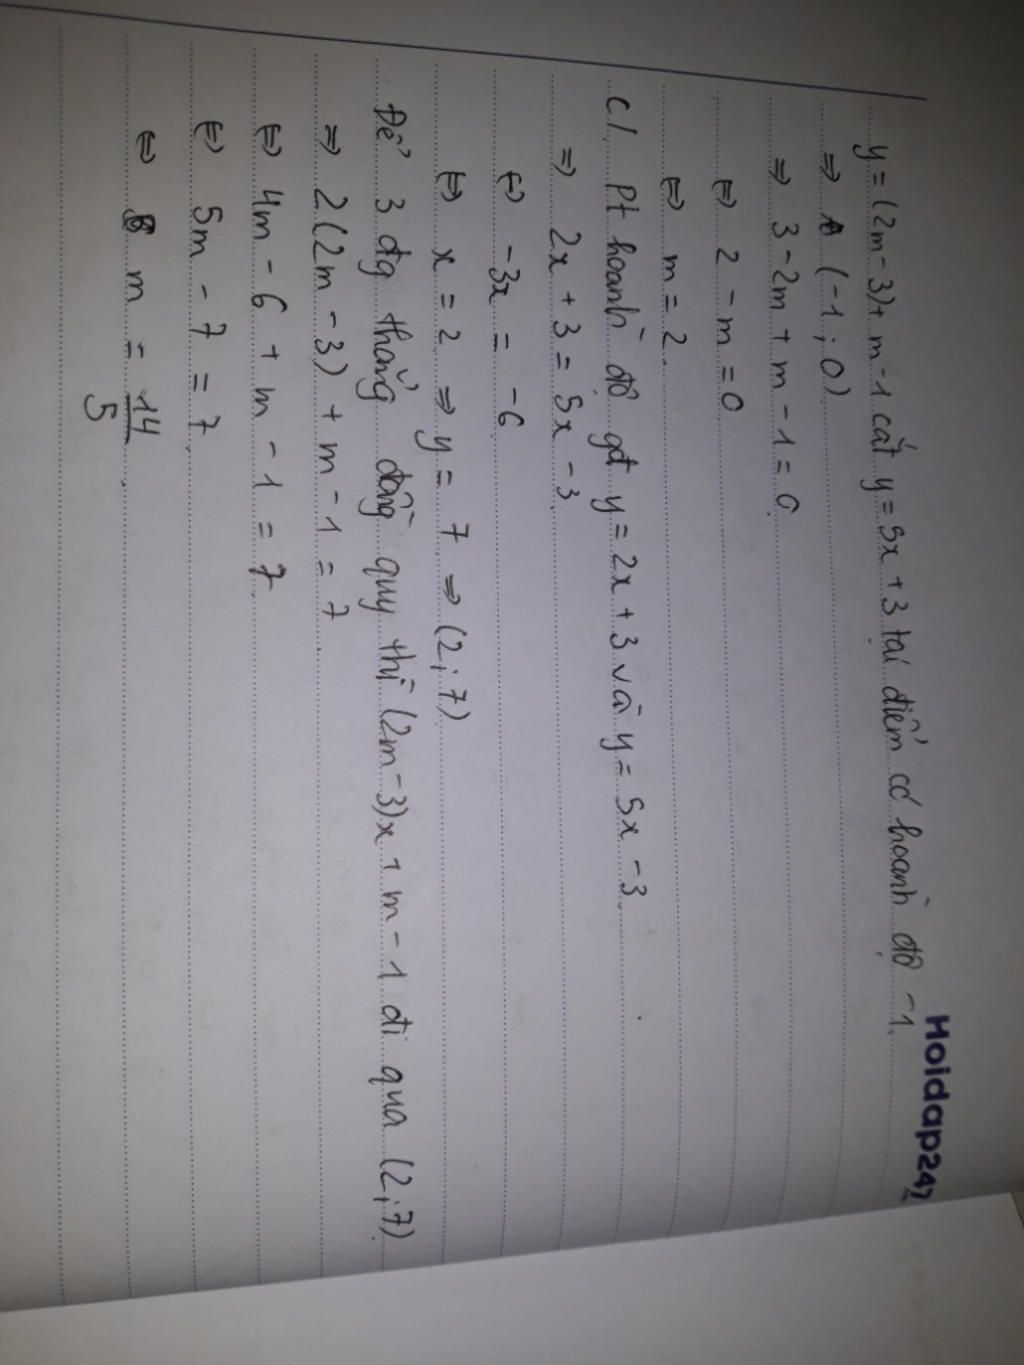 Hoidap247
y = (2m - 3) + m - 1 cắt y = 5x + 3 tại điểm có hoành độ -1.
⇒ A (-1 ; 0)
⇒ 3 - 2m + m - 1 = 0
⇔ 2 - m = 0
⇔ m = 2
c/ Pt hoành độ gđ y = 2x + 3 và y = 5x - 3.
⇒ 2x + 3 = 5x - 3
⇔ -3x = -6
⇔ x = 2 ⇒ y = 7 ⇒ (2 ; 7)
Để 3 đg thẳng đồng quy thì (2m - 3)x + m - 1 đi qua (2 ; 7)
⇒ 2(2m - 3) + m - 1 = 7
⇔ 4m - 6 + m - 1 = 7
⇔ 5m - 7 = 7
⇔ m = 14/5